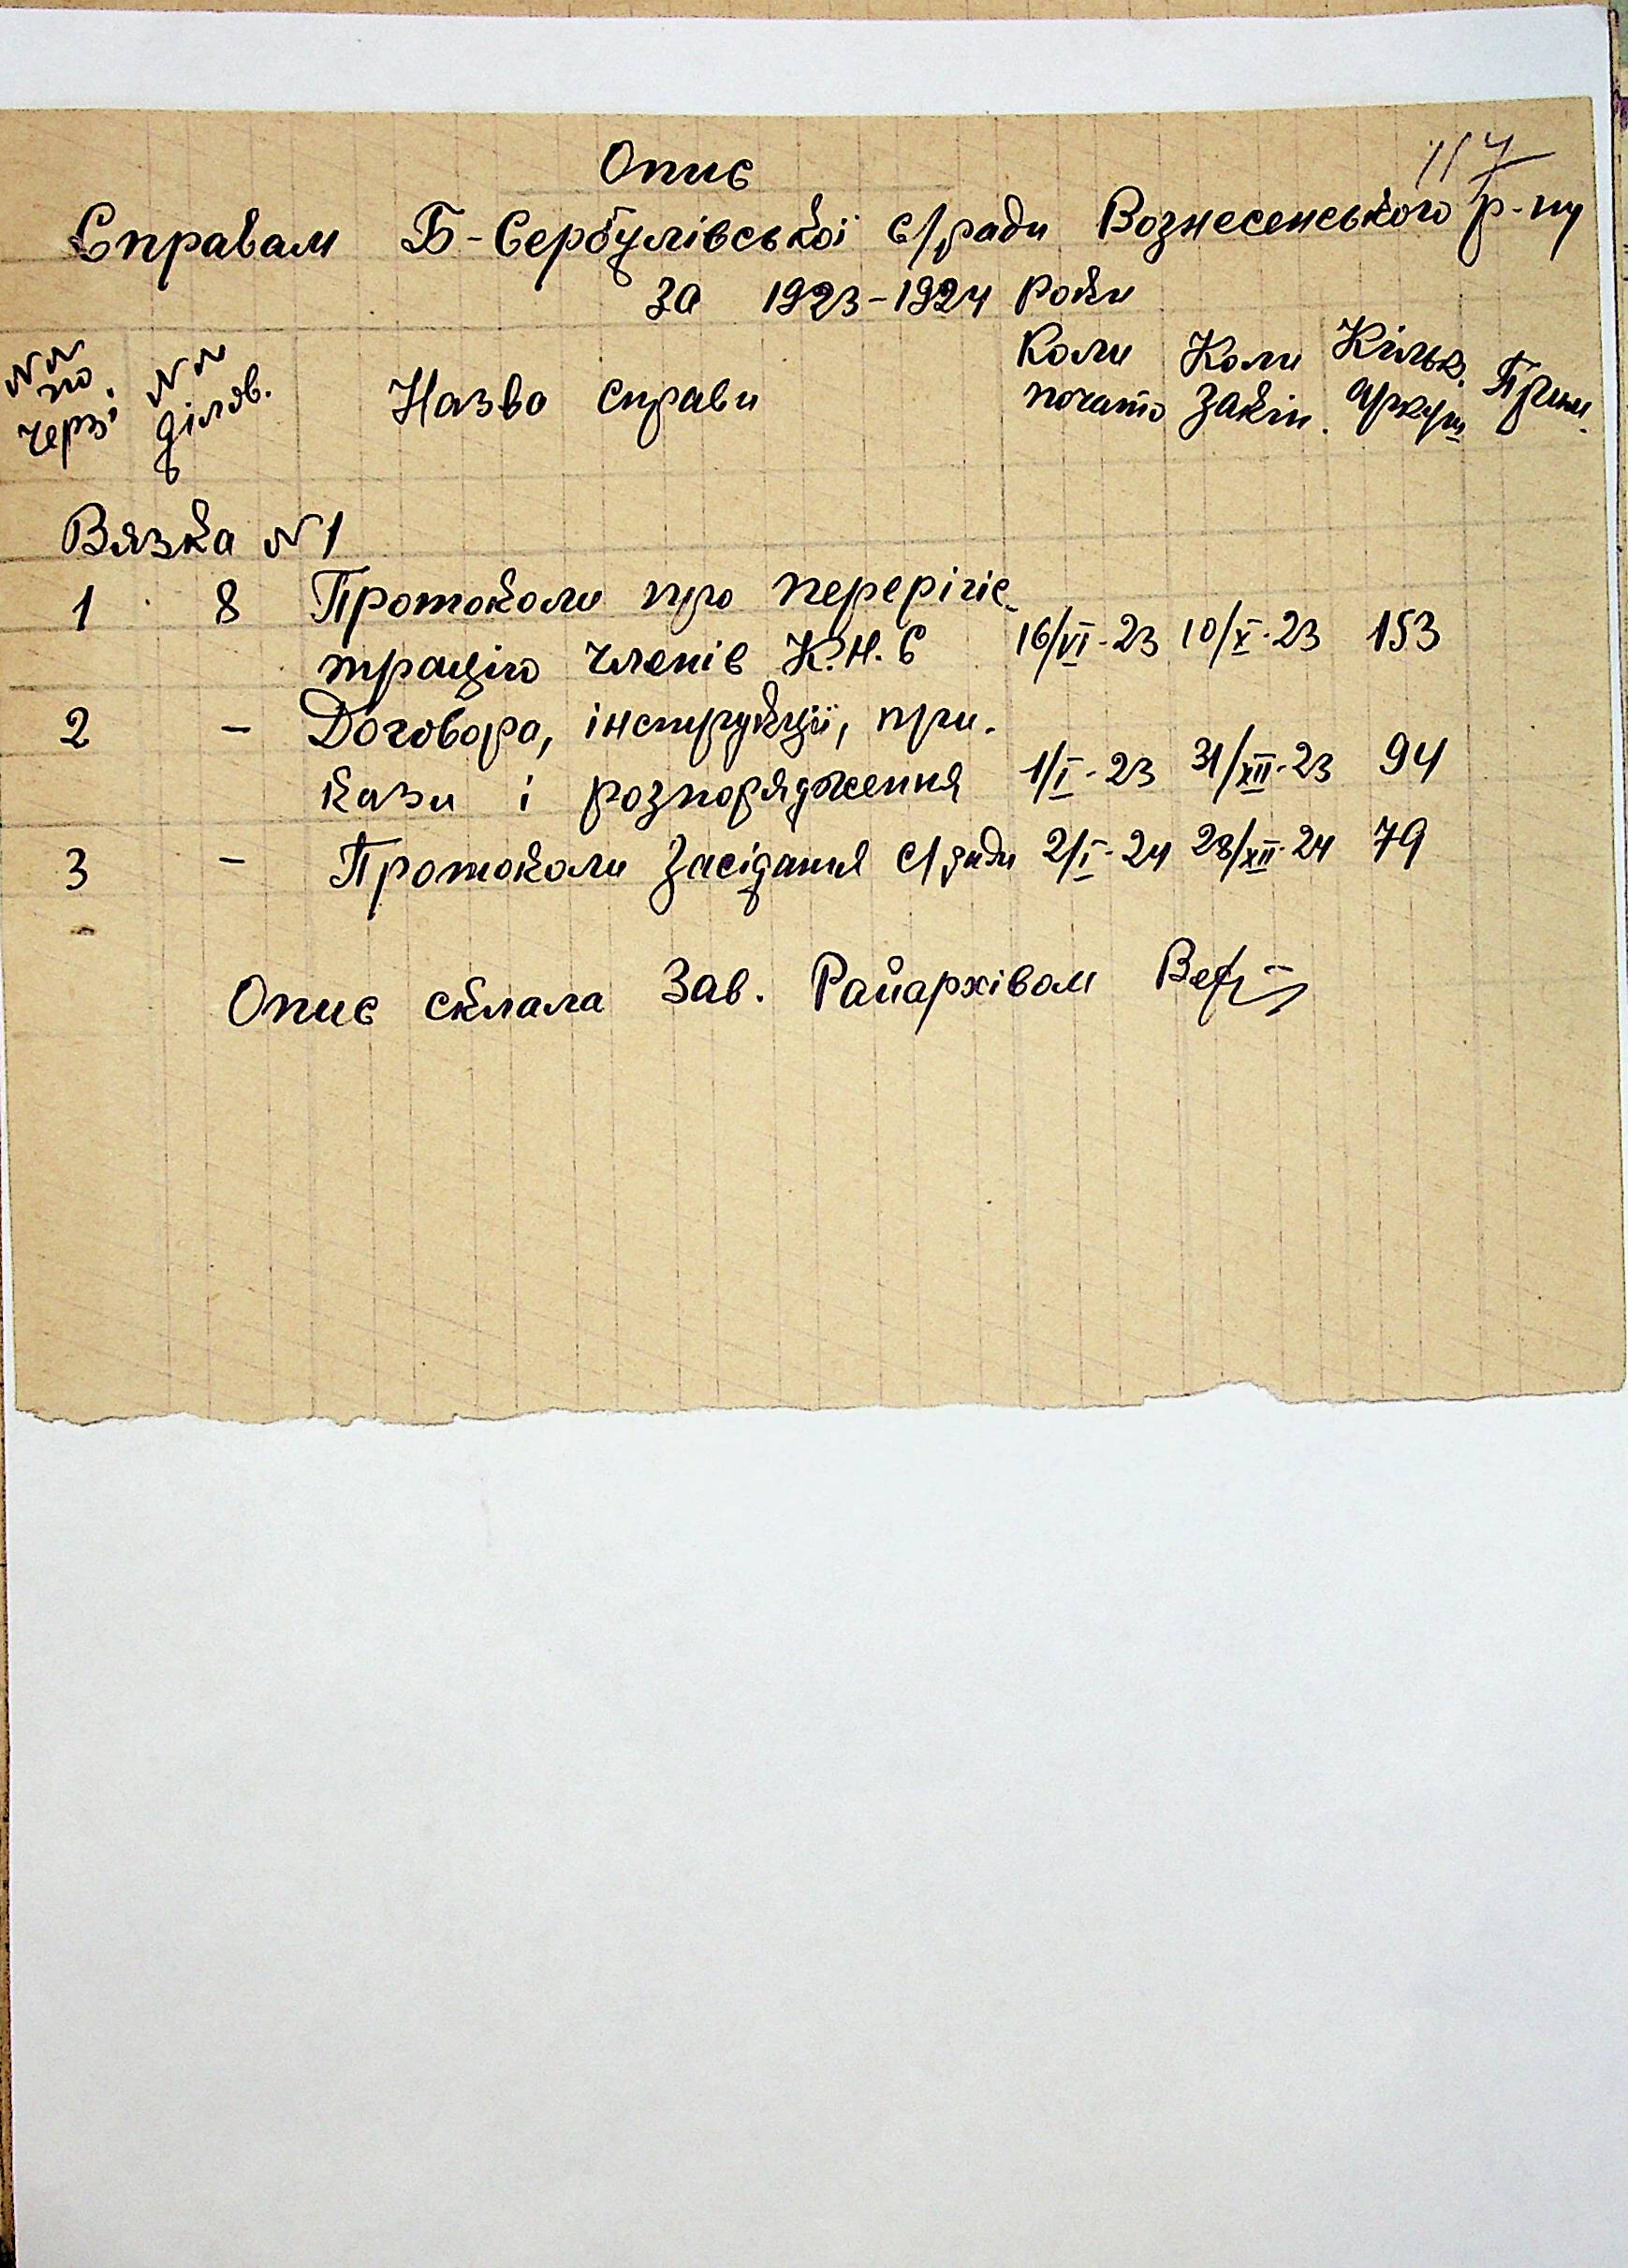 117
Опис
Справам Б-Сербулівської с/ради Вознесенського р-ну
за 1923-1924 роки
NN по черзі NN ділов. Назва справи Коли почато Коли закін. Кільк. аркуш Прим.
Вязка N1
1 8 Протоколи про перерігіс-
трацію членів К.Н.С 16/VI-23 10/X-23 153
2 - Договора, інструкції, при-
кази і розпорядження 1/I-23 31/XII-23 94
3 - Протоколи засідання с/ради 2/I-24 28/XII-24 79
Опис склала Зав. Райархівом